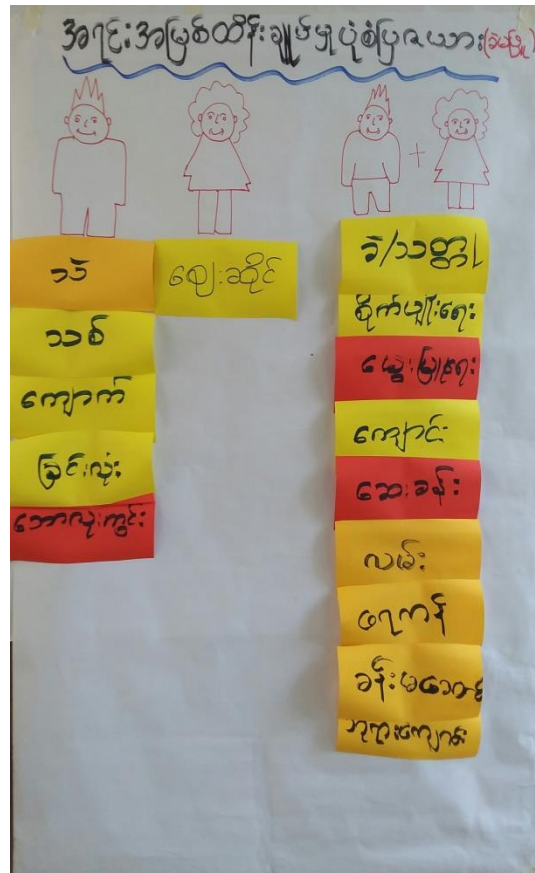 အရင်းအမြစ်ထိန်းချုပ်မှုပုံစံပြဇယား(ခမ်းဖြူ)
သဲ
သစ်
ကျောက်
ခြင်းလုံး
ဘောလုံးကွင်း
ဈေးဆိုင်
+
ခဲ/သတ္တု
စိုက်ပျိုးရေး
မွေးမြူရေး
ကျောင်း
ဆေးခန်း
လမ်း
ရေကန်
ခန်းမဆောင်
ဘုရားကျောင်း